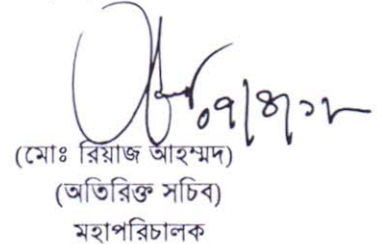 ০৭/৪/১৮
(মোঃ রিয়াজ আহম্মদ)
(অতিরিক্ত সচিব)
মহাপরিচালক